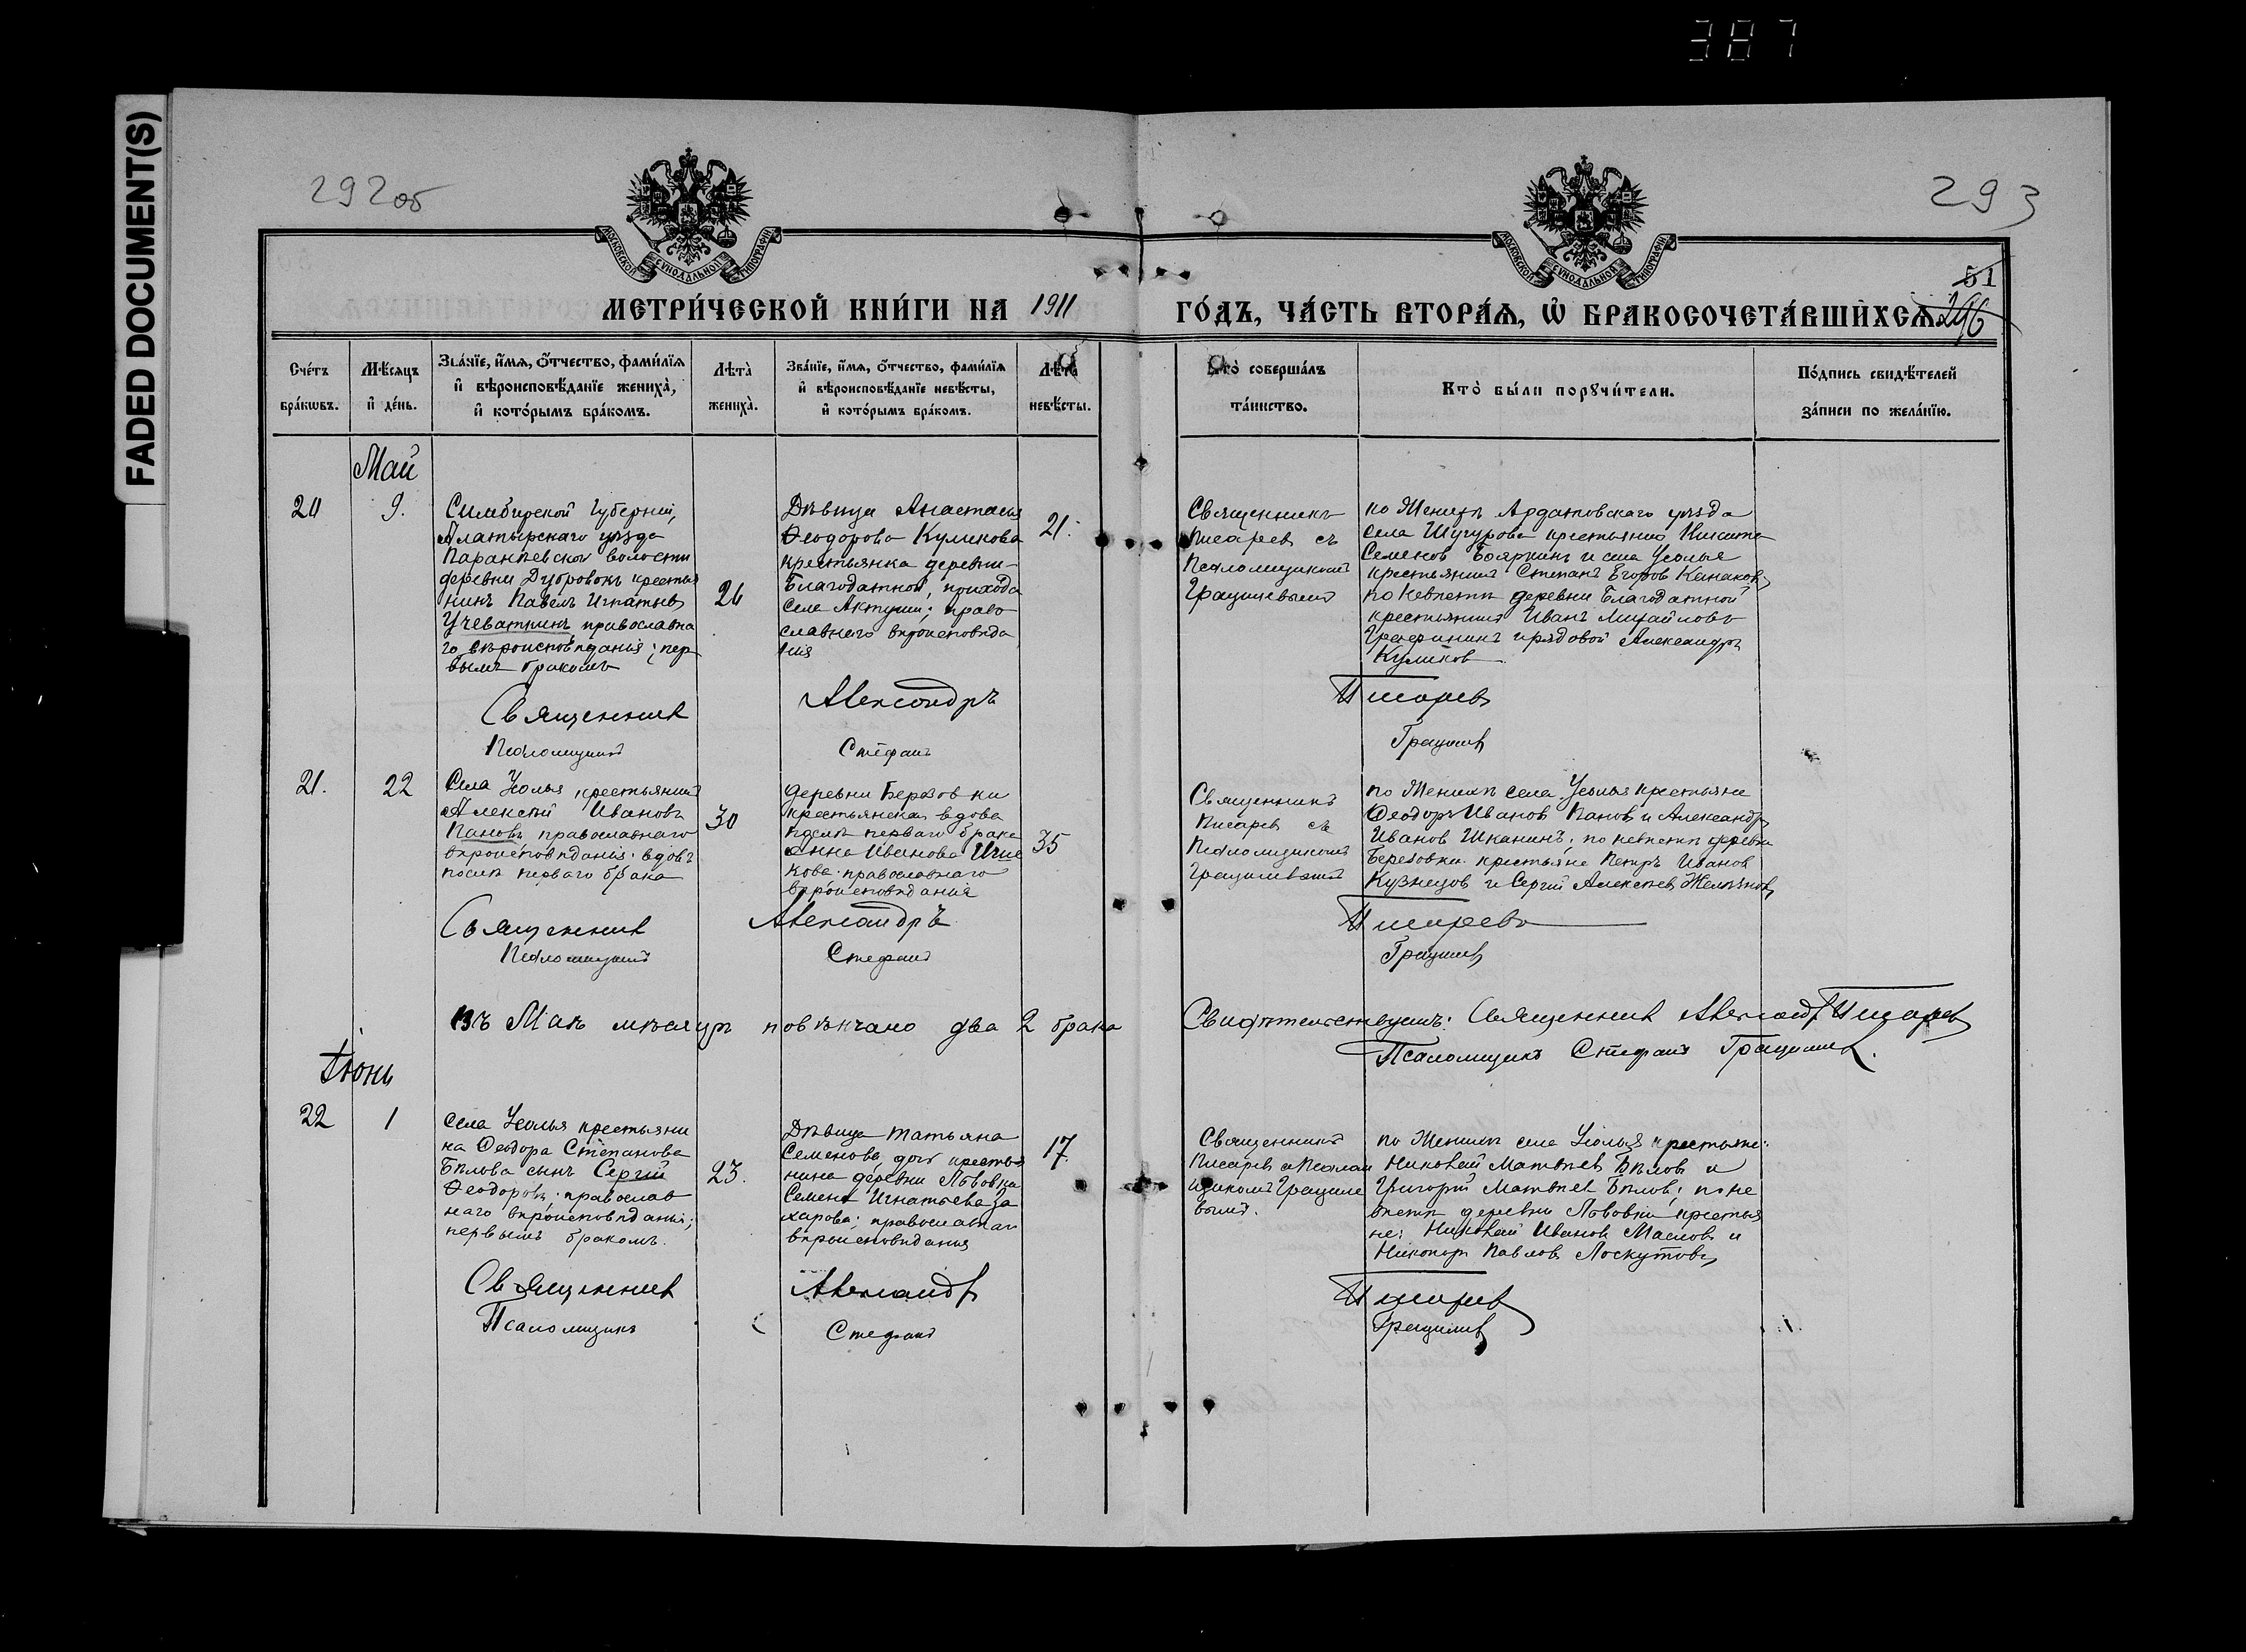 387
FADED DOCUMENT(S)
292об
293
МОСКОВСКОЙ СУНОДАЛЬНОЙ ТИПОГРАФІИ
МОСКОВСКОЙ СУНОДАЛЬНОЙ ТИПОГРАФІИ
51
296
МЕТРИ́ЧЕСКОЙ КНИ́ГИ НА 1911 ГО́ДЪ, ЧА́СТЬ ВТОРА́Я, Ѡ БРАКОСОЧЕТА́ВШИХСЯ
Сче́тъ
бра́кѡвъ.
Мѣ́сяцъ
и де́нь.
Зва́нїе, и́мя, ѻ́тчество, фами́лїя
и҆ вѣроисповѣ́данїе жениха̀,
и҆ кото́рымъ бра́комъ.
Лѣта̀
жениха̀.
Зва́нїе, и́мя, ѻ́тчество, фами́лїя
и҆ вѣроисповѣ́данїе невѣ́сты,
и҆ кото́рымъ бра́комъ.
Лѣта̀
невѣ́сты.
Кто̀ соверша́лъ
та́инство.
Кто̀ бы́ли порꙋчи́тели.
По́дпись свидѣ́телей
за́писи по жела́нїю.
Май
20
9.
Симбирской губерніи,
Алатырскаго уѣзда
Паранѣевской волости
деревни Дубровокъ крестья
нинъ Павелъ Игнатьевъ
Учеваткинъ православна
го вѣроисповѣданія; пер
вымъ бракомъ
24
Дѣвица Анастасія
Ѳеодорова Куликова
крестьянка деревни
Благодатной, прихода
села Актуши; право
славнаго вѣроисповѣда
нія
21.
Священникъ
Писаревъ съ
Псаломщикомъ
Грацилевымъ
по Женихѣ Ардатовскаго уѣзда
села Шугурова крестьянинъ Никита
Семеновъ Бояркинъ и села Усолья
крестьянинъ Степанъ Егоровъ Канаковъ,
по Невѣстѣ деревни Благодатной
крестьянинъ Иванъ Михайловъ
и рядовой Александръ
Куликовъ
Священникъ Александръ Писаревъ
Псаломщикъ Стефанъ Грацилевъ
21.
22
Села Усолья крестьянинъ
Алексѣй Ивановъ
Пановъ православнаго
вѣроисповѣданія; вдовъ
послѣ перваго брака
30
деревни Березовки
крестьянская вдова
послѣ перваго брака
Анна Иванова
кова православнаго
вѣроисповѣданія
35
Священникъ
Писаревъ съ
Псаломщикомъ
Грацилевымъ
по Женихѣ села Усолья крестьяне
Ѳеодоръ Ивановъ Пановъ и Александръ
Ивановъ Шканинъ; по невѣстѣ деревни
Березовки крестьяне Петръ Ивановъ
Кузнецовъ и Сергій Алексѣевъ
Священникъ Александръ Писаревъ
Псаломщикъ Стефанъ Грацилевъ
Въ Маѣ мѣсяцѣ повѣнчано два 2 брака
Свидѣтельствуемъ: Священникъ Александръ Писаревъ
Псаломщикъ Стефанъ Грацилевъ.
Іюнь
22
1
Села Усолья крестьяни
на Ѳеодора Степанова
Бѣлова сынъ Сергій
Ѳеодоровъ; православ
наго вѣроисповѣданія;
первымъ бракомъ.
23.
Дѣвица Татьяна
Семенова дочь крестья
нина деревни Львовки
Семена Игнатьева За
харова; православнаго
вѣроисповѣданія
17.
Священникъ
Писаревъ съ Псалом
щикомъ Грациле
вымъ.
по Женихѣ села Усолья крестьяне:
Николай Матвѣевъ Бѣловъ и
Григорій Матвѣевъ Бѣловъ; по не
вѣстѣ деревни Львовки крестья
не: Николай Ивановъ Масловъ и
Никаноръ Павловъ Лоскутовъ
Священникъ Александръ Писаревъ
Псаломщикъ Стефанъ Грацилевъ